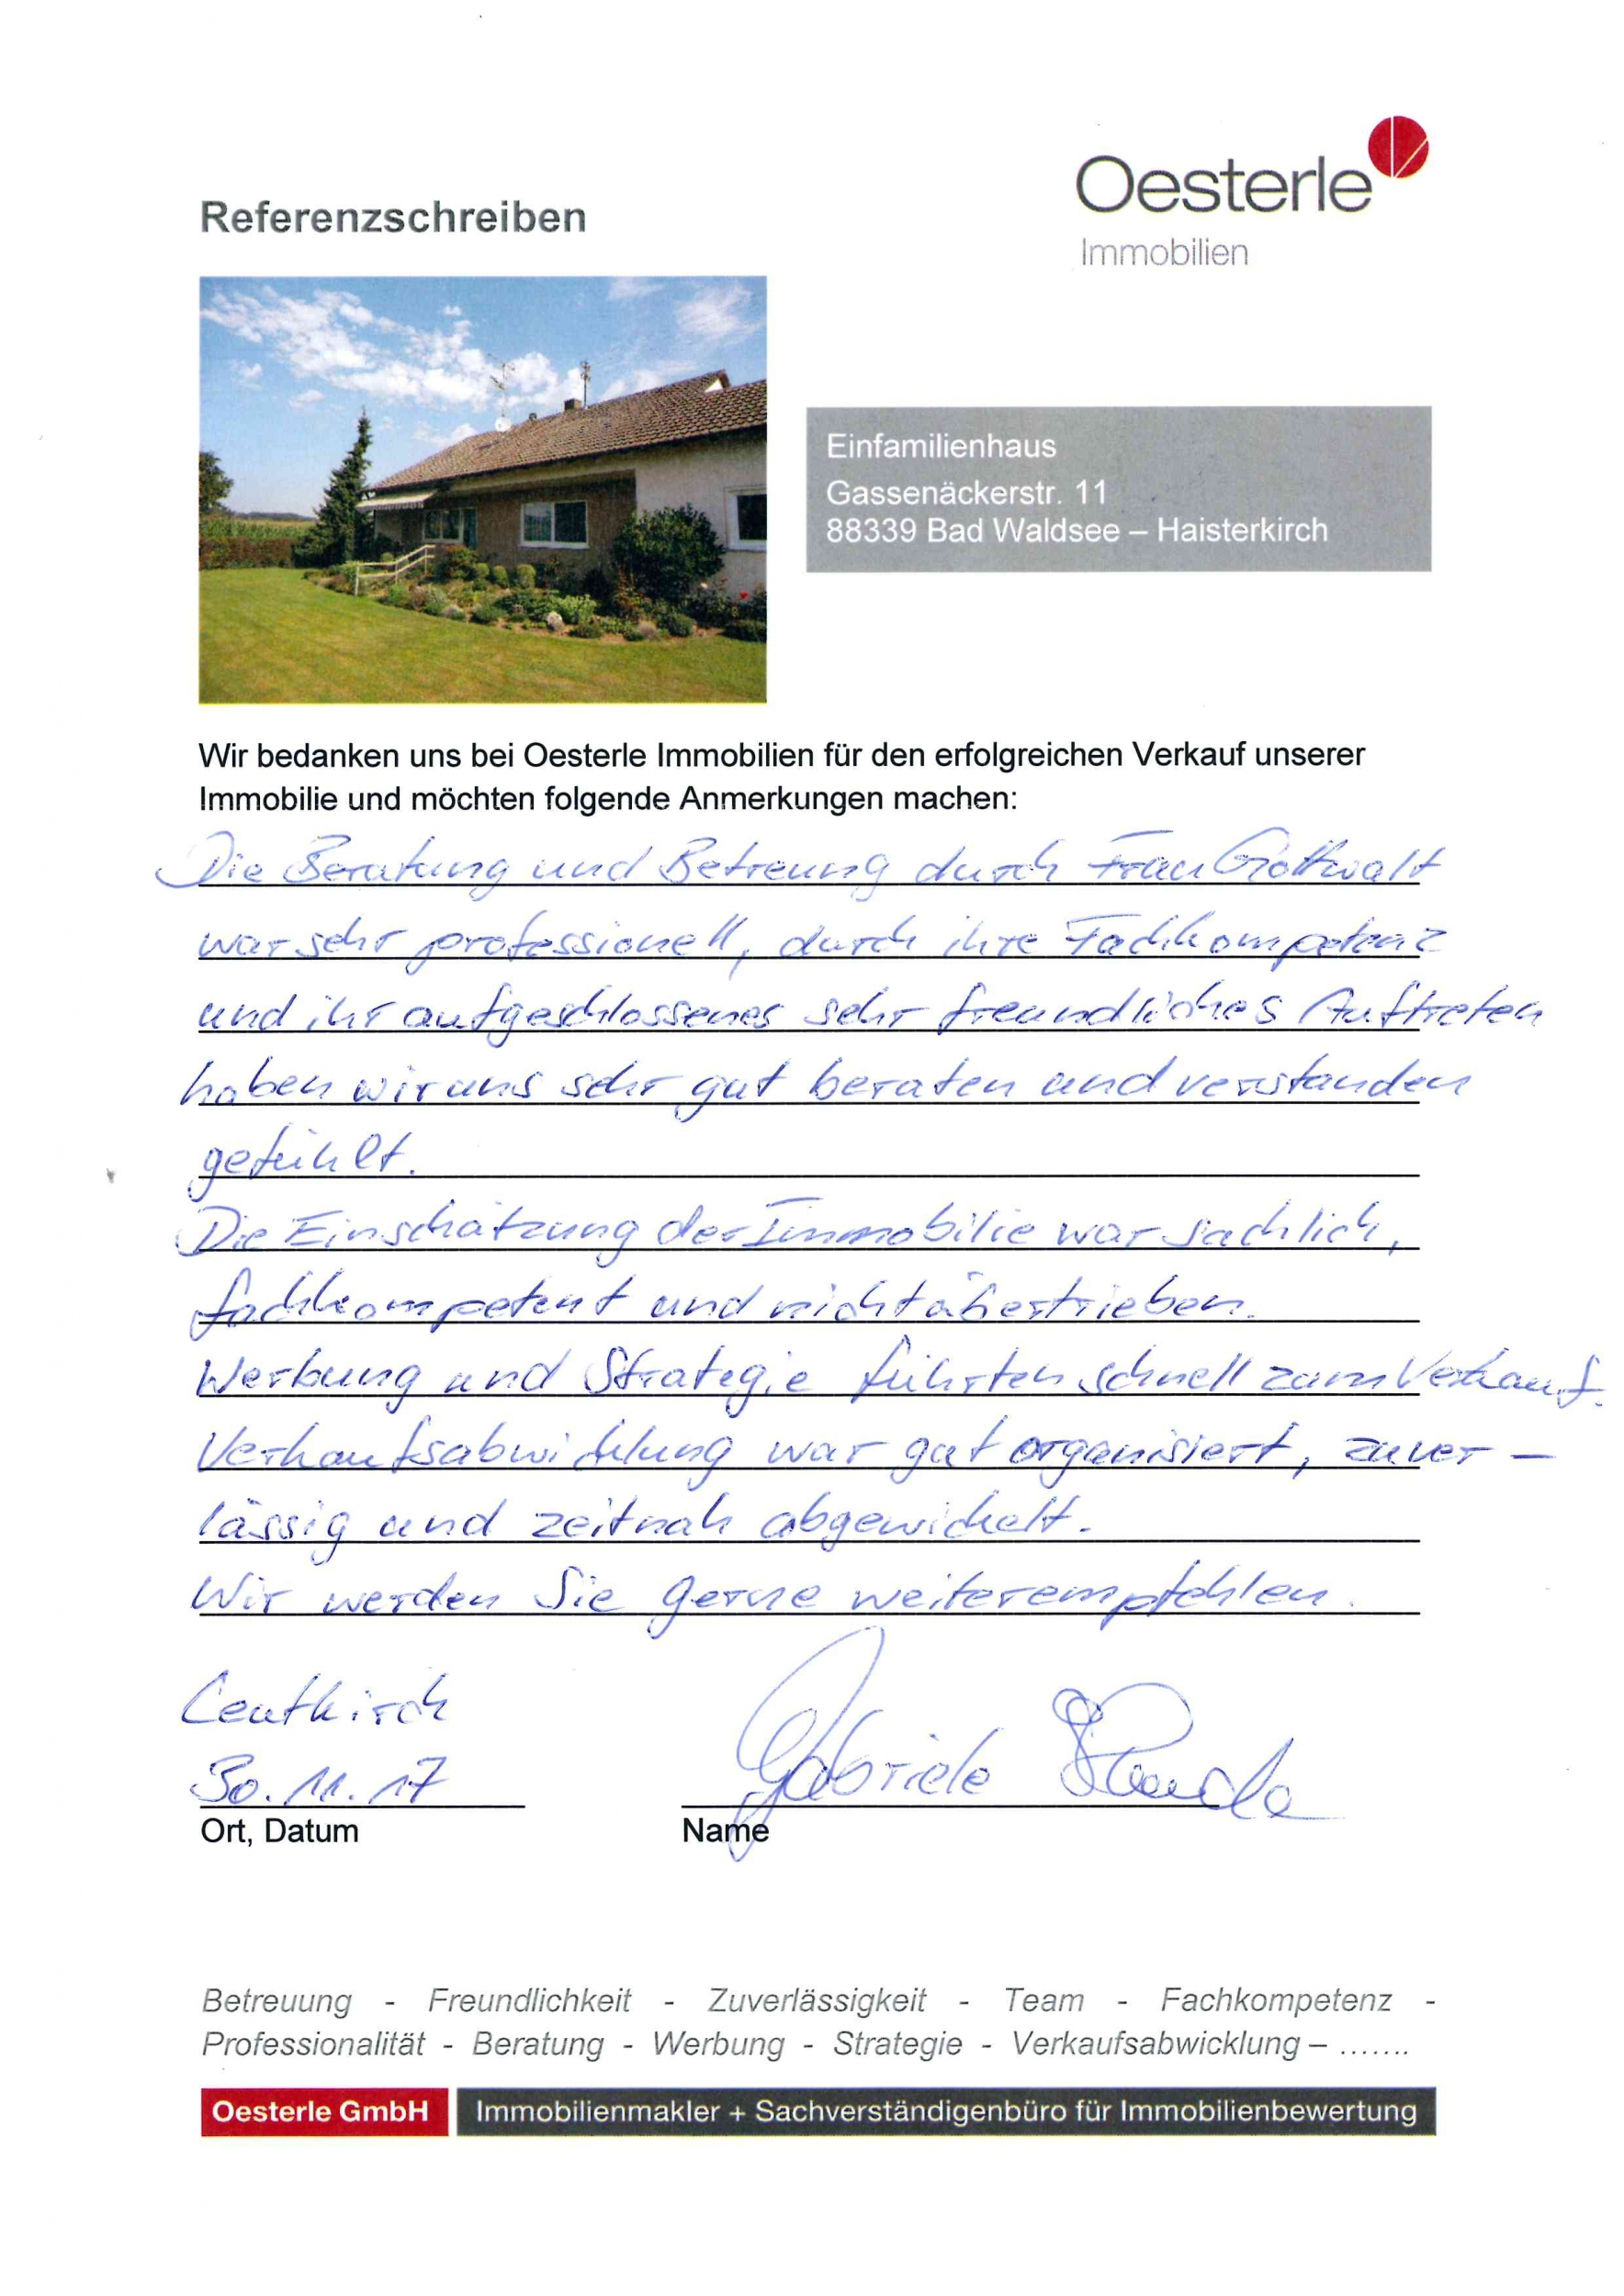 Oesterle
Immobilien
Referenzschreiben
Einfamilienhaus
Gassenäckerstr. 11
88339 Bad Waldsee – Haisterkirch
Wir bedanken uns bei Oesterle Immobilien für den erfolgreichen Verkauf unserer
Immobilie und möchten folgende Anmerkungen machen:
Die Beratung und Betreung durch Frau Gottwalt
war sehr professionell, durch ihre Fachkompetenz
und ihr aufgeschlossenes sehr freundliches Auftreten
haben wir uns sehr gut beraten und verstanden
gefühlt.
Die Einschätzung der Immobilie war sachlich,
fachkompetent und nicht übertrieben.
Werbung und Strategie führten schnell zum Verkauf.
Verkaufsabwicklung war gut organisiert, zuver-
lässig und zeitnah abgewickelt.
Wir werden Sie gerne weiterempfehlen.
Leutkirch
30.11.17
Gabriele
Ort, Datum
Name
Betreuung - Freundlichkeit - Zuverlässigkeit - Team - Fachkompetenz -
Professionalität - Beratung - Werbung - Strategie - Verkaufsabwicklung – .......
Oesterle GmbH
Immobilienmakler + Sachverständigenbüro für Immobilienbewertung